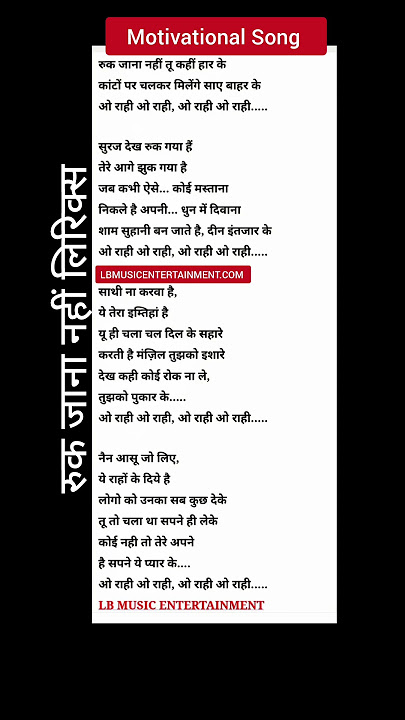 Motivational Song
रुक जाना नहीं लिरिक्स
रुक जाना नहीं तू कहीं हार के
कांटों पर चलकर मिलेंगे साए बाहर के
ओ राही ओ राही, ओ राही ओ राही.....
सुरज देख रुक गया हैं
तेरे आगे झुक गया है
जब कभी ऐसे... कोई मस्ताना
निकले है अपनी... धुन में दिवाना
शाम सुहानी बन जाते है, दीन इंतजार के
ओ राही ओ राही, ओ राही ओ राही.....
LBMUSICENTERTAINMENT.COM
साथी ना करवा है,
ये तेरा इम्तिहां है
यू ही चला चल दिल के सहारे
करती है मंज़िल तुझको इशारे
देख कही कोई रोक ना ले,
तुझको पुकार के.....
ओ राही ओ राही, ओ राही ओ राही.....
नैन आसू जो लिए,
ये राहों के दिये है
लोगो को उनका सब कुछ देके
तू तो चला था सपने ही लेके
कोई नही तो तेरे अपने
है सपने ये प्यार के....
ओ राही ओ राही, ओ राही ओ राही.....
LB MUSIC ENTERTAINMENT